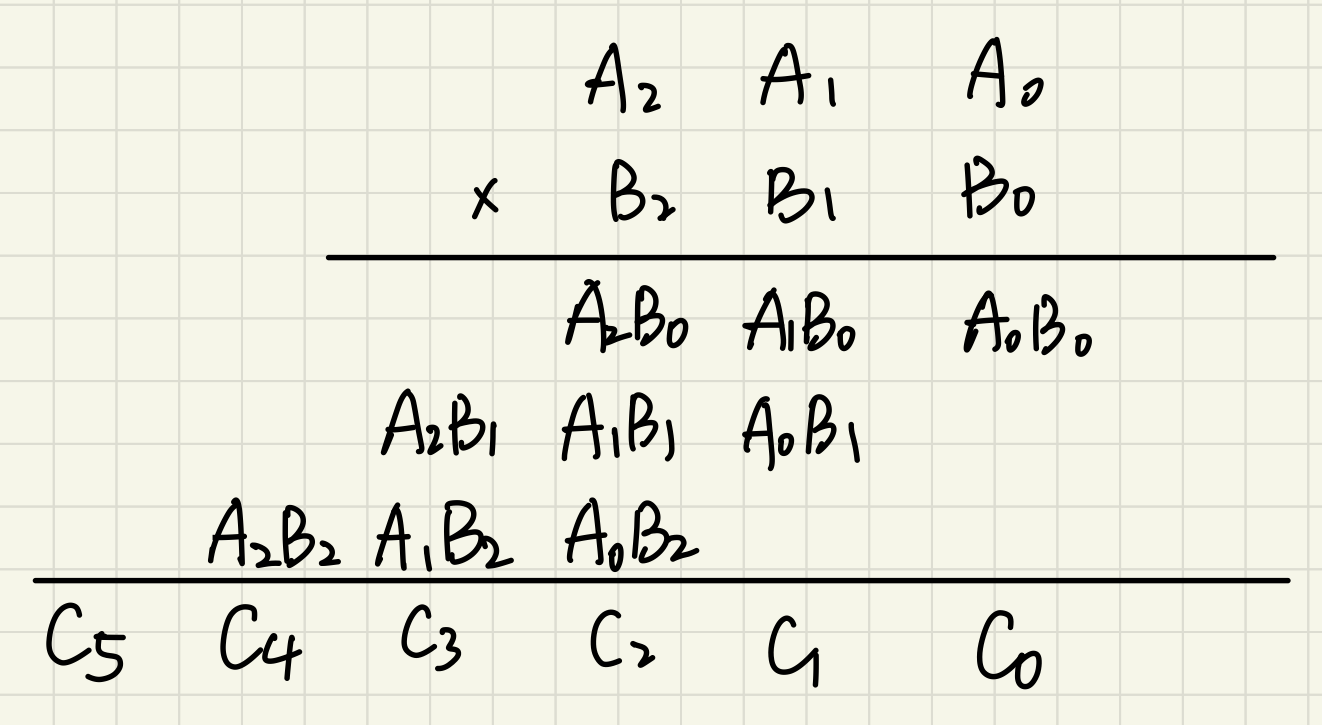 A₂ A₁ A₀
× B₂ B₁ B₀
A₂B₀ A₁B₀ A₀B₀
A₂B₁ A₁B₁ A₀B₁
A₂B₂ A₁B₂ A₀B₂
C₅ C₄ C₃ C₂ C₁ C₀